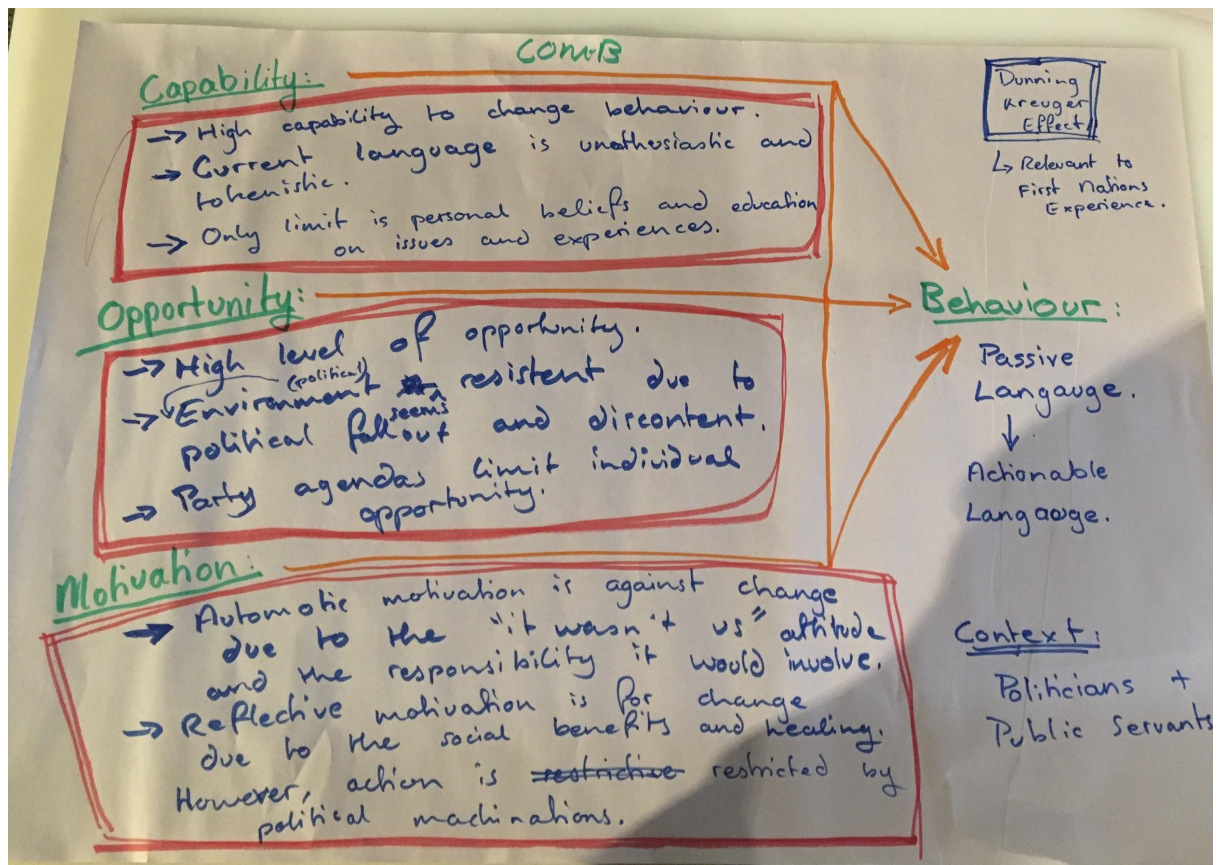 COM-B
Capability:
→ High capability to change behaviour.
→ Current language is unathusiastic and
tokenistic.
→ Only limit is personal beliefs and education
on issues and experiences.
Opportunity:
→ High level of opportunity.
(political)
→ Environment resistent due to
seems
political fallout and discontent.
→ Party agendas limit individual
opportunity.
Motivation:
→ Automotic motivation is against change
due to the "it wasn't us" attitude
and the responsibility it would involve.
→ Reflective motivation is for change
due to the social benefits and healing.
However, action is restrictive restricted by
political machinations.
Dunning
Kreuger
Effect
↳ Relevant to
First Nations
Experience.
Behaviour:
Passive
Langauge.
↓
Actionable
Langauge.
Context:
Politicians +
Public Servants